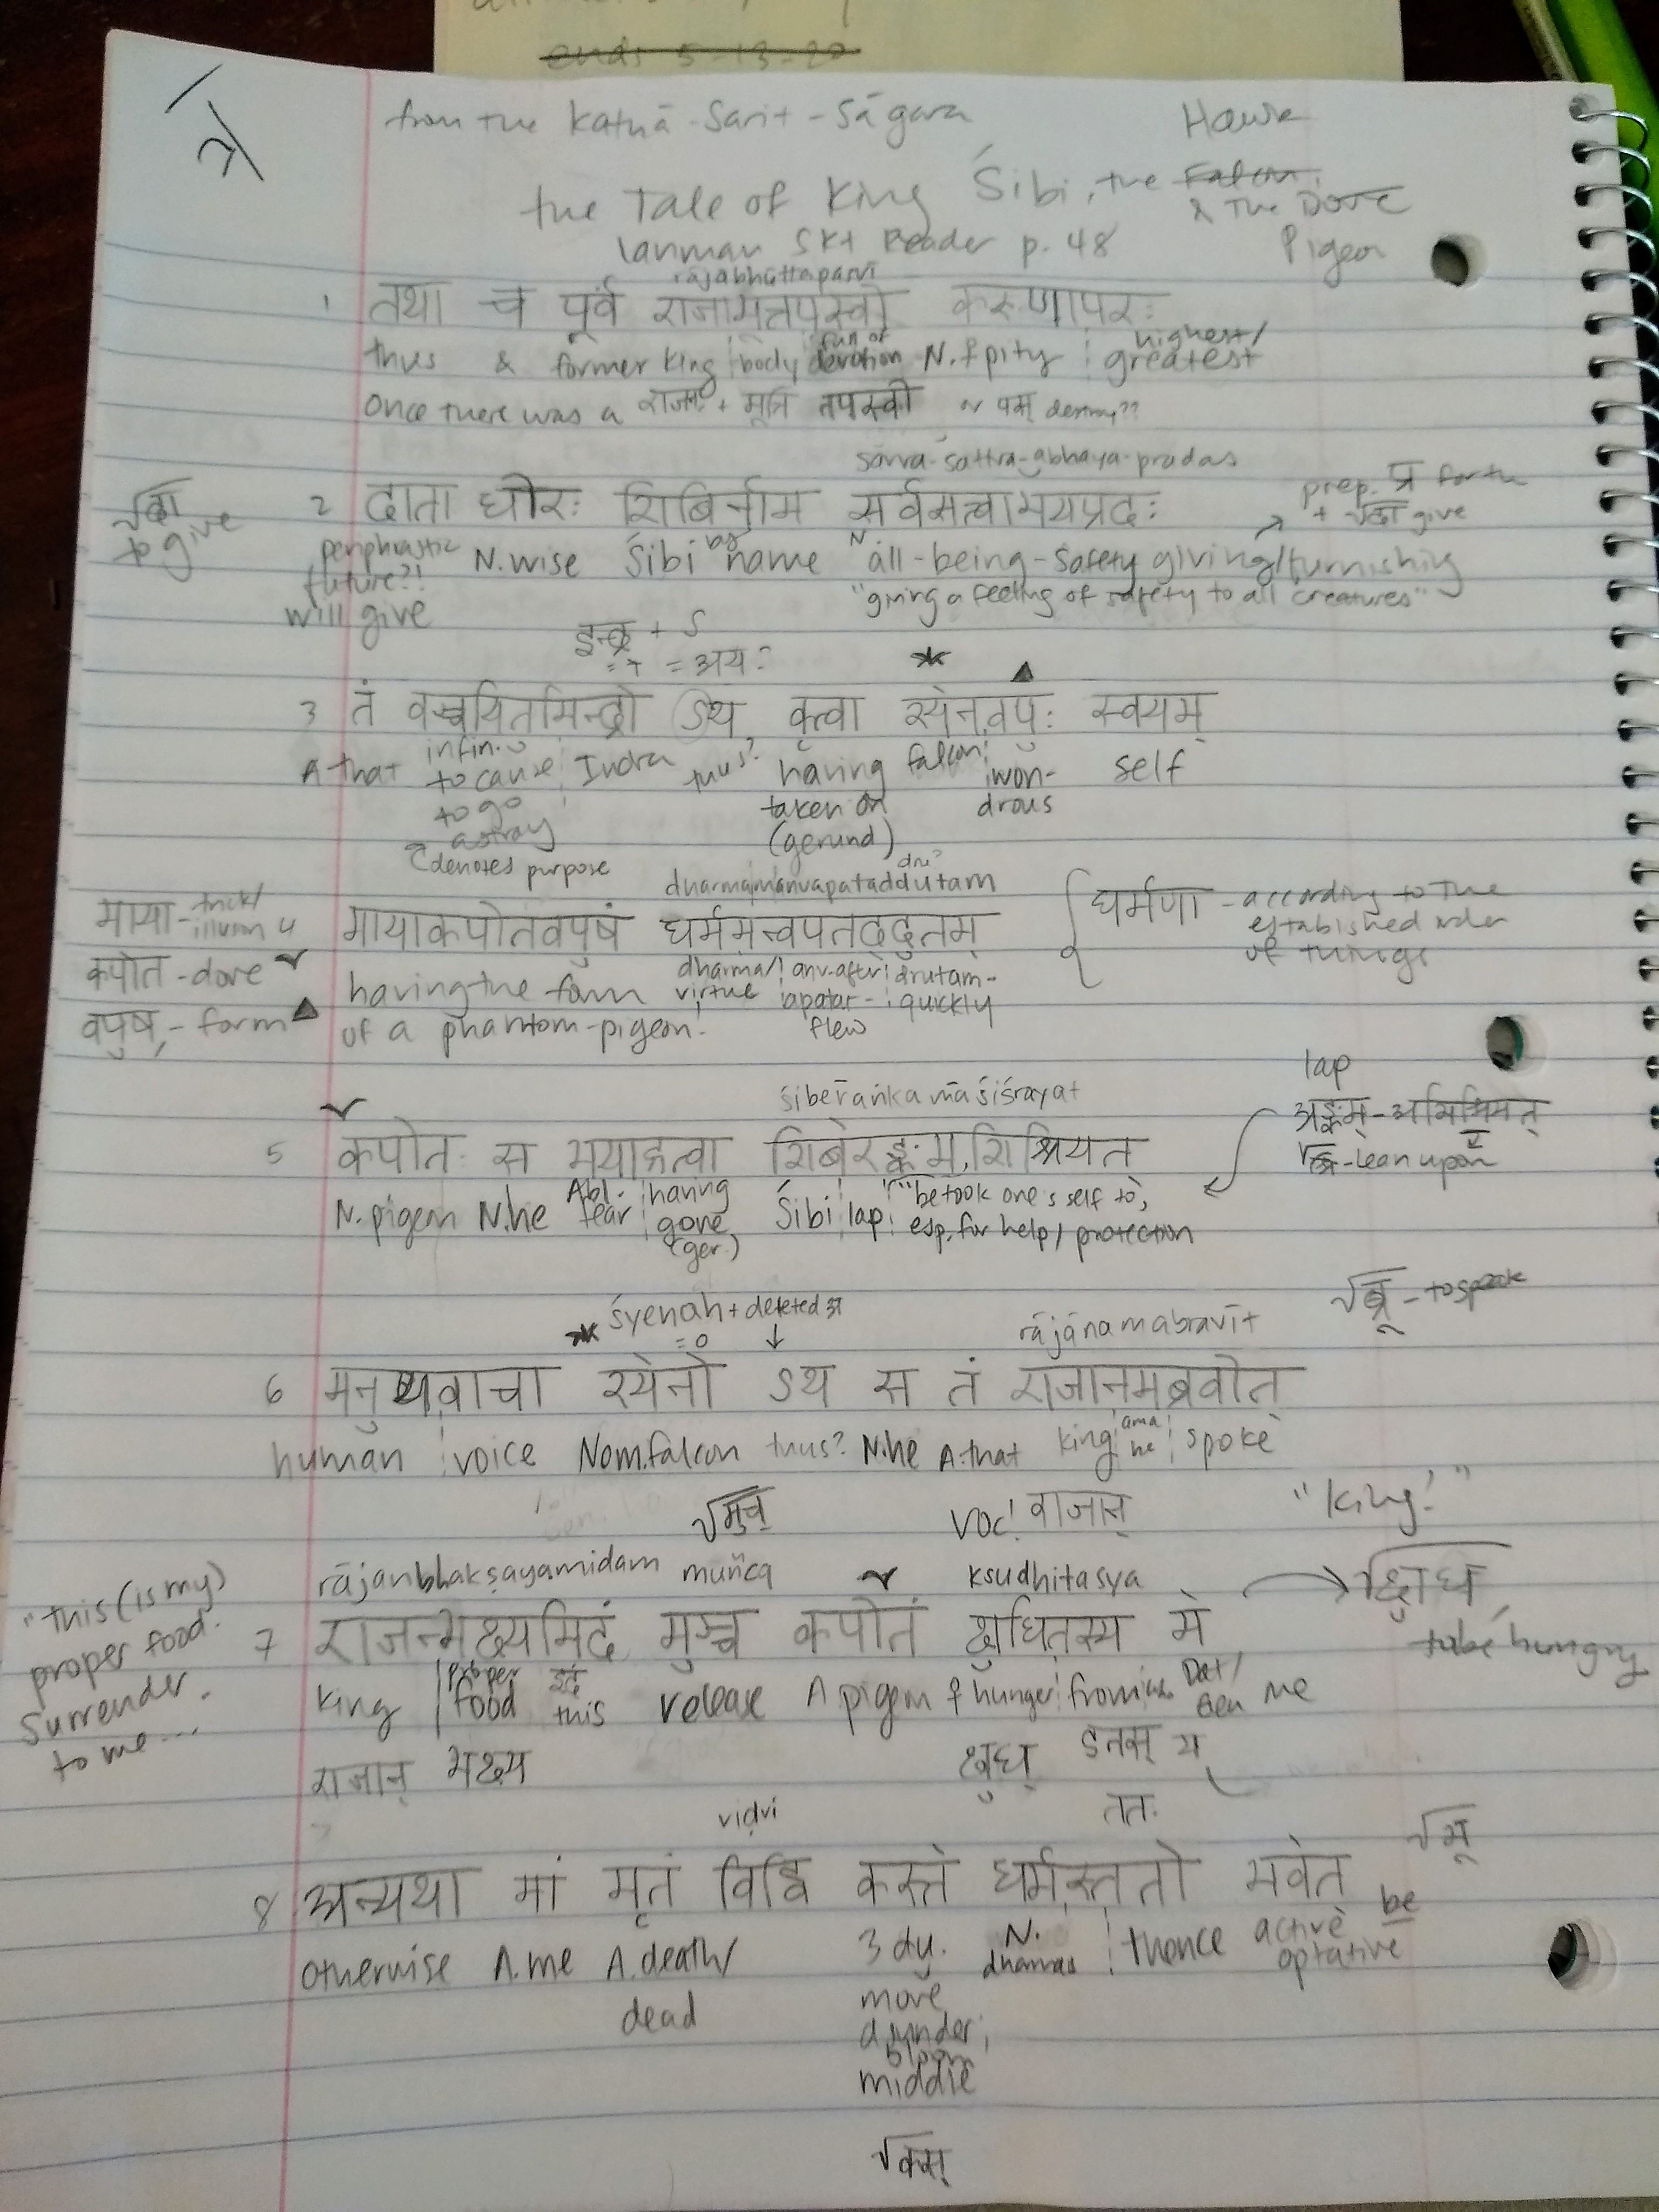 ends 5-13-20
from the Kathā-Sarit-Sāgara
Hawk
the Tale of King Śibi, the Falcon,
& The Dove
Lanman Skt Reader p. 48
Pigeon
rājabhūttapasvī
1 तथा च पूर्वं राजाभूत्तपस्वी करुणापरः
thus & former King body full of devotion N. f pity highest/ greatest
Once there was a राजा + मूत्रि तपस्वी destroy??
sarva-sattva-abhaya-pradas
prep. प्र forth
+ √दा give
√दा
to give
2 दाता धीरः शिबिर्नाम सर्वसत्त्वाभयप्रदः
periphrastic future?! will give
N. wise Śibi by name N all-being-safety giving/furnishing
"giving a feeling of safety to all creatures"
इन्द्र + s
= अय?
3 तं वञ्चयितुमिन्द्रो ऽथ कृत्वा श्येनवपुः स्वयम्
A that infin. to cause to go astray Indra thus? having taken on (gerund) falcon won-drous self
denotes purpose
dru?
dharmamanvapataddutam
माया - trick/ illusion
4 मायाकपोतवपुषं धर्ममन्वपतद्द्रुतम्
धर्मणा - according to the established order of things
कपोत - dove
वपुष् - form
having the form of a phantom-pigeon.
dharma/ virtue anv-after apatat- flew drutam- quickly
lap
śiberaṅkamaśiśrayat
अङ्कम् - अशिश्रियत्
√श्रि - lean upon
5 कपोतः स भयाद्गत्वा शिबेरङ्कमशिश्रियत्
N. pigeon N. he Abl. fear having gone (ger.) Śibi lap "betook one's self to, esp. for help/protection
√ब्रू - to speak
śyenaḥ + deleted अ
=o
rājānamabravīt
6 मनुष्यवाचा श्येनो ऽथ स तं राजानमब्रवीत्
human voice Nom. falcon thus? N. he A. that king ama he spoke
√मुच्
voc! राजान्
"King!"
rājanbhakṣayamidam muñca ksudhitasya
√क्षुध्
to be hungry
"this (is my) proper food. Surrender. to me...
7 राजन्भक्ष्यमिदं मुञ्च कपोतं क्षुधितस्य मे
king proper food इदं this release A pigeon f hunger from Dat/ Gen me
राजान् भक्ष्य
क्षुध्
ततः
vidvi
√भू
8 अन्यथा मां मृतं विद्धि कस्ते धर्मस्ततो भवेत्
otherwise A. me A. death/ dead
3 du. move asunder; middle
N. dharmas thence active optative be
√कस्